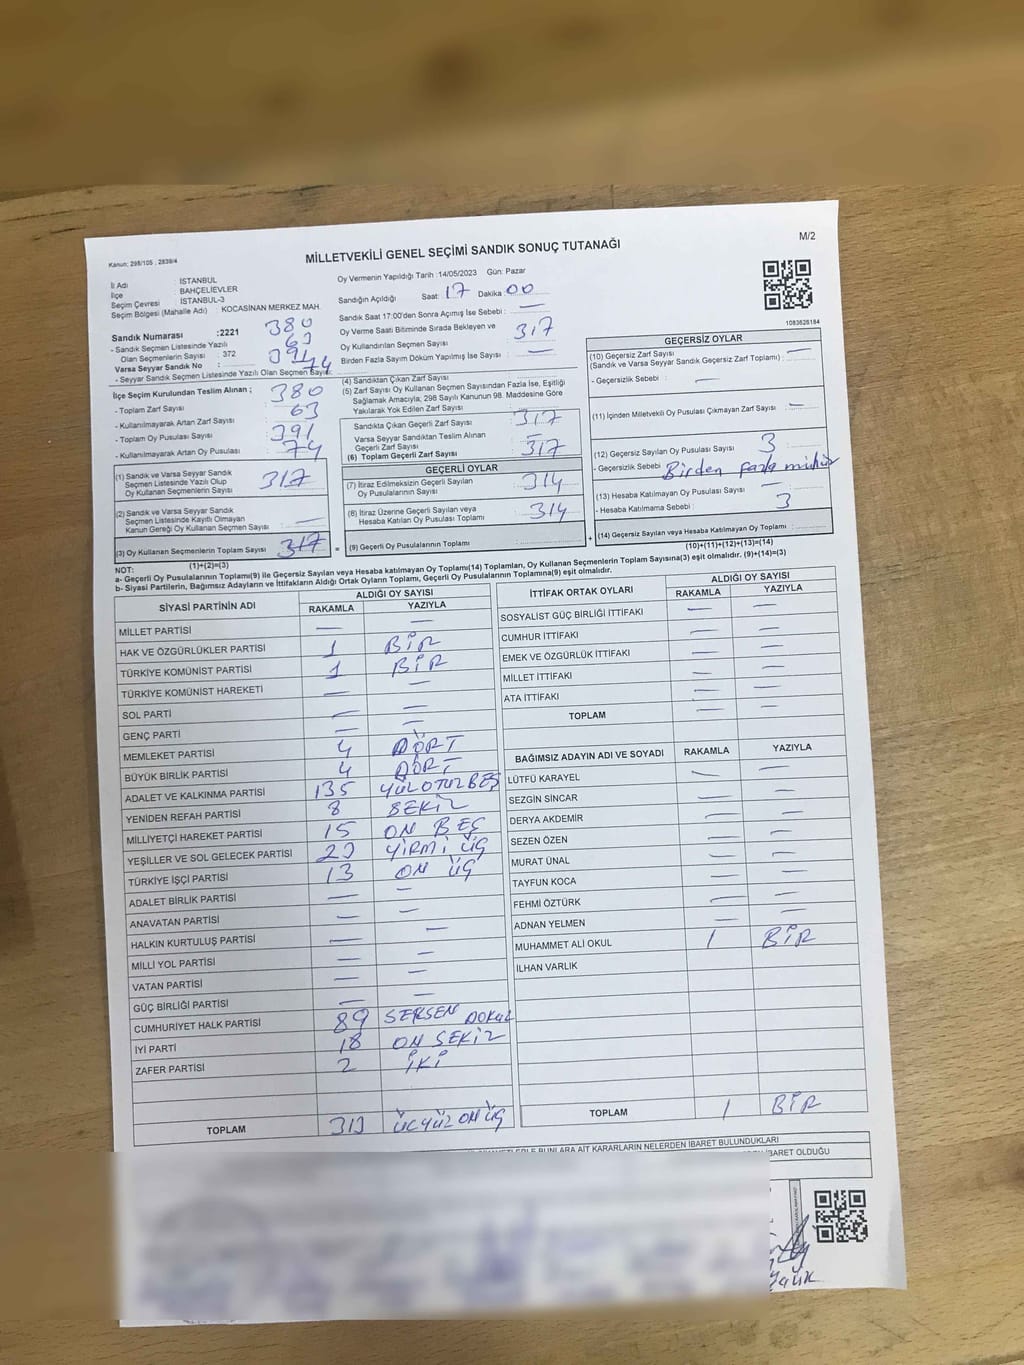 M/2
Kanun: 298/105 , 2839/4
MİLLETVEKİLİ GENEL SEÇİMİ SANDIK SONUÇ TUTANAĞI
İl Adı : İSTANBUL
İlçe : BAHÇELİEVLER
Seçim Çevresi : İSTANBUL-3
Seçim Bölgesi (Mahalle Adı) : KOCASİNAN MERKEZ MAH.
Sandık Numarası :2221 380
- Sandık Seçmen Listesinde Yazılı 63
Olan Seçmenlerin Sayısı : 372 391
Varsa Seyyar Sandık No : 74
- Seyyar Sandık Seçmen Listesinde Yazılı Olan Seçmen
İlçe Seçim Kurulundan Teslim Alınan ;
- Toplam Zarf Sayısı : 380
- Kullanılmayarak Artan Zarf Sayısı : 63
- Toplam Oy Pusulası Sayısı : 391
- Kullanılmayarak Artan Oy Pusulası : 74
(1) Sandık ve Varsa Seyyar Sandık
Seçmen Listesinde Yazılı Olup
Oy Kullanan Seçmenlerin Sayısı : 317
(2) Sandık ve Varsa Seyyar Sandık
Seçmen Listesinde Kayıtlı Olmayan
Kanun Gereği Oy Kullanan Seçmen Sayısı : —
(3) Oy Kullanan Seçmenlerin Toplam Sayısı : 317
(1)+(2)=(3)
Oy Vermenin Yapıldığı Tarih :14/05/2023 Gün: Pazar
Sandığın Açıldığı Saat: 17 Dakika 00
Sandık Saat 17:00'den Sonra Açımış İse Sebebi : —
Oy Verme Saati Bitiminde Sırada Bekleyen ve
Oy Kullandırılan Seçmen Sayısı : 317
Birden Fazla Sayım Döküm Yapılmış İse Sayısı : —
(4) Sandıktan Çıkan Zarf Sayısı
(5) Zarf Sayısı Oy Kullanan Seçmen Sayısından Fazla İse, Eşitliği
Sağlamak Amacıyla; 298 Sayılı Kanunun 98. Maddesine Göre
Yakılarak Yok Edilen Zarf Sayısı
Sandıkta Çıkan Geçerli Zarf Sayısı : 317
Varsa Seyyar Sandıktan Teslim Alınan
Geçerli Zarf Sayısı : —
(6) Toplam Geçerli Zarf Sayısı : 317
GEÇERLİ OYLAR
(7) İtiraz Edilmeksizin Geçerli Sayılan
Oy Pusulalarının Sayısı : 314
(8) İtiraz Üzerine Geçerli Sayılan veya
Hesaba Katılan Oy Pusulası Toplamı : 314
= (9) Geçerli Oy Pusulalarının Toplamı :
1083626184
GEÇERSİZ OYLAR
(10) Geçersiz Zarf Sayısı : —
(Sandık ve Varsa Seyyar Sandık Geçersiz Zarf Toplamı) :
- Geçersizlik Sebebi : —
(11) İçinden Milletvekili Oy Pusulası Çıkmayan Zarf Sayısı : —
(12) Geçersiz Sayılan Oy Pusulası Sayısı : 3
- Geçersizlik Sebebi : Birden fazla mühür
(13) Hesaba Katılmayan Oy Pusulası Sayısı : —
- Hesaba Katılmama Sebebi : 3
+ (14) Geçersiz Sayılan veya Hesaba Katılmayan Oy Toplamı :
(10)+(11)+(12)+(13)=(14)
NOT:
a- Geçerli Oy Pusulalarının Toplamı(9) ile Geçersiz Sayılan veya Hesaba katılmayan Oy Toplamı(14) Toplamları, Oy Kullanan Seçmenlerin Toplam Sayısına(3) eşit olmalıdır. (9)+(14)=(3)
b- Siyasi Partilerin, Bağımsız Adayların ve İttifakların Aldığı Ortak Oyların Toplamı, Geçerli Oy Pusulalarının Toplamına(9) eşit olmalıdır.
SİYASİ PARTİNİN ADI ALDIĞI OY SAYISI
RAKAMLA YAZIYLA
MİLLET PARTİSİ — —
HAK VE ÖZGÜRLÜKLER PARTİSİ 1 BİR
TÜRKİYE KOMÜNİST PARTİSİ 1 BİR
TÜRKİYE KOMÜNİST HAREKETİ — —
SOL PARTİ — —
GENÇ PARTİ — —
MEMLEKET PARTİSİ 4 DÖRT
BÜYÜK BİRLİK PARTİSİ 4 DÖRT
ADALET VE KALKINMA PARTİSİ 135 YÜZOTUZBEŞ
YENİDEN REFAH PARTİSİ 8 SEKİZ
MİLLİYETÇİ HAREKET PARTİSİ 15 ON BEŞ
YEŞİLLER VE SOL GELECEK PARTİSİ 23 YİRMİ ÜÇ
TÜRKİYE İŞÇİ PARTİSİ 13 ON ÜÇ
ADALET BİRLİK PARTİSİ — —
ANAVATAN PARTİSİ — —
HALKIN KURTULUŞ PARTİSİ — —
MİLLİ YOL PARTİSİ — —
VATAN PARTİSİ — —
GÜÇ BİRLİĞİ PARTİSİ — —
CUMHURİYET HALK PARTİSİ 89 SEKSEN DOKUZ
İYİ PARTİ 18 ON SEKİZ
ZAFER PARTİSİ 2 İKİ
TOPLAM 313 ÜÇYÜZ ON ÜÇ
İTTİFAK ORTAK OYLARI ALDIĞI OY SAYISI
RAKAMLA YAZIYLA
SOSYALİST GÜÇ BİRLİĞİ İTTİFAKI — —
CUMHUR İTTİFAKI — —
EMEK VE ÖZGÜRLÜK İTTİFAKI — —
MİLLET İTTİFAKI — —
ATA İTTİFAKI — —
TOPLAM — —
BAĞIMSIZ ADAYIN ADI VE SOYADI RAKAMLA YAZIYLA
LÜTFÜ KARAYEL — —
SEZGİN SİNCAR — —
DERYA AKDEMİR — —
SEZEN ÖZEN — —
MURAT ÜNAL — —
TAYFUN KOCA — —
FEHMİ ÖZTÜRK — —
ADNAN YELMEN — —
MUHAMMET ALİ OKUL 1 BİR
İLHAN VARLIK
TOPLAM 1 BİR
BUNLARA AİT KARARLARIN NELERDEN İBARET BULUNDUKLARI
İBARET OLDUĞU